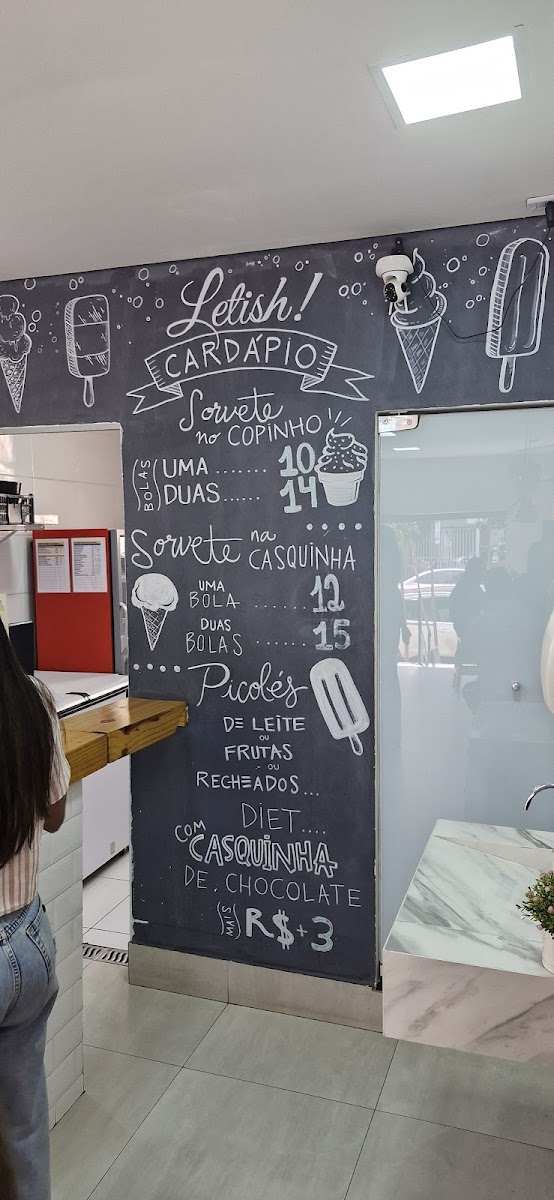 Letish!
CARDÁPIO
Sorvete
no COPINHO
(BOLAS) UMA ....... 10
DUAS...... 14
Sorvete na
CASQUINHA
UMA
BOLA ........ 12
DUAS
BOLAS ........ 15
Picolés
DE LEITE
OU
FRUTAS
OU
RECHEADOS...
DIET....
COM
CASQUINHA
DE CHOCOLATE
(MAIS) R$+3